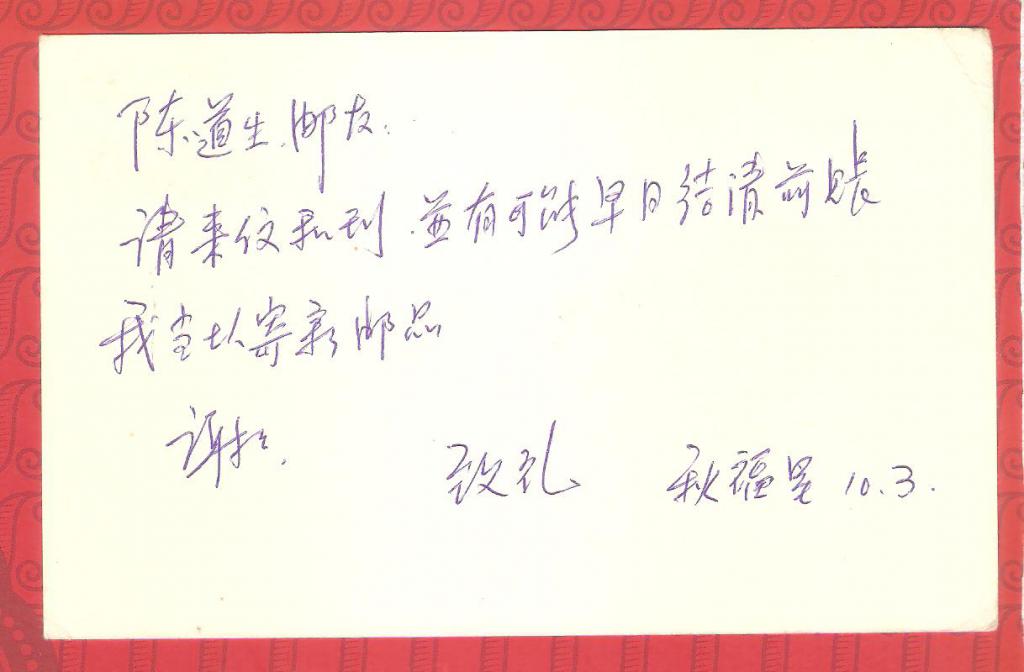 陈道生邮友:
请来仅 到 並有可能早日结清前账
我当 寄新邮品
谢
致礼 秋福 10.3.